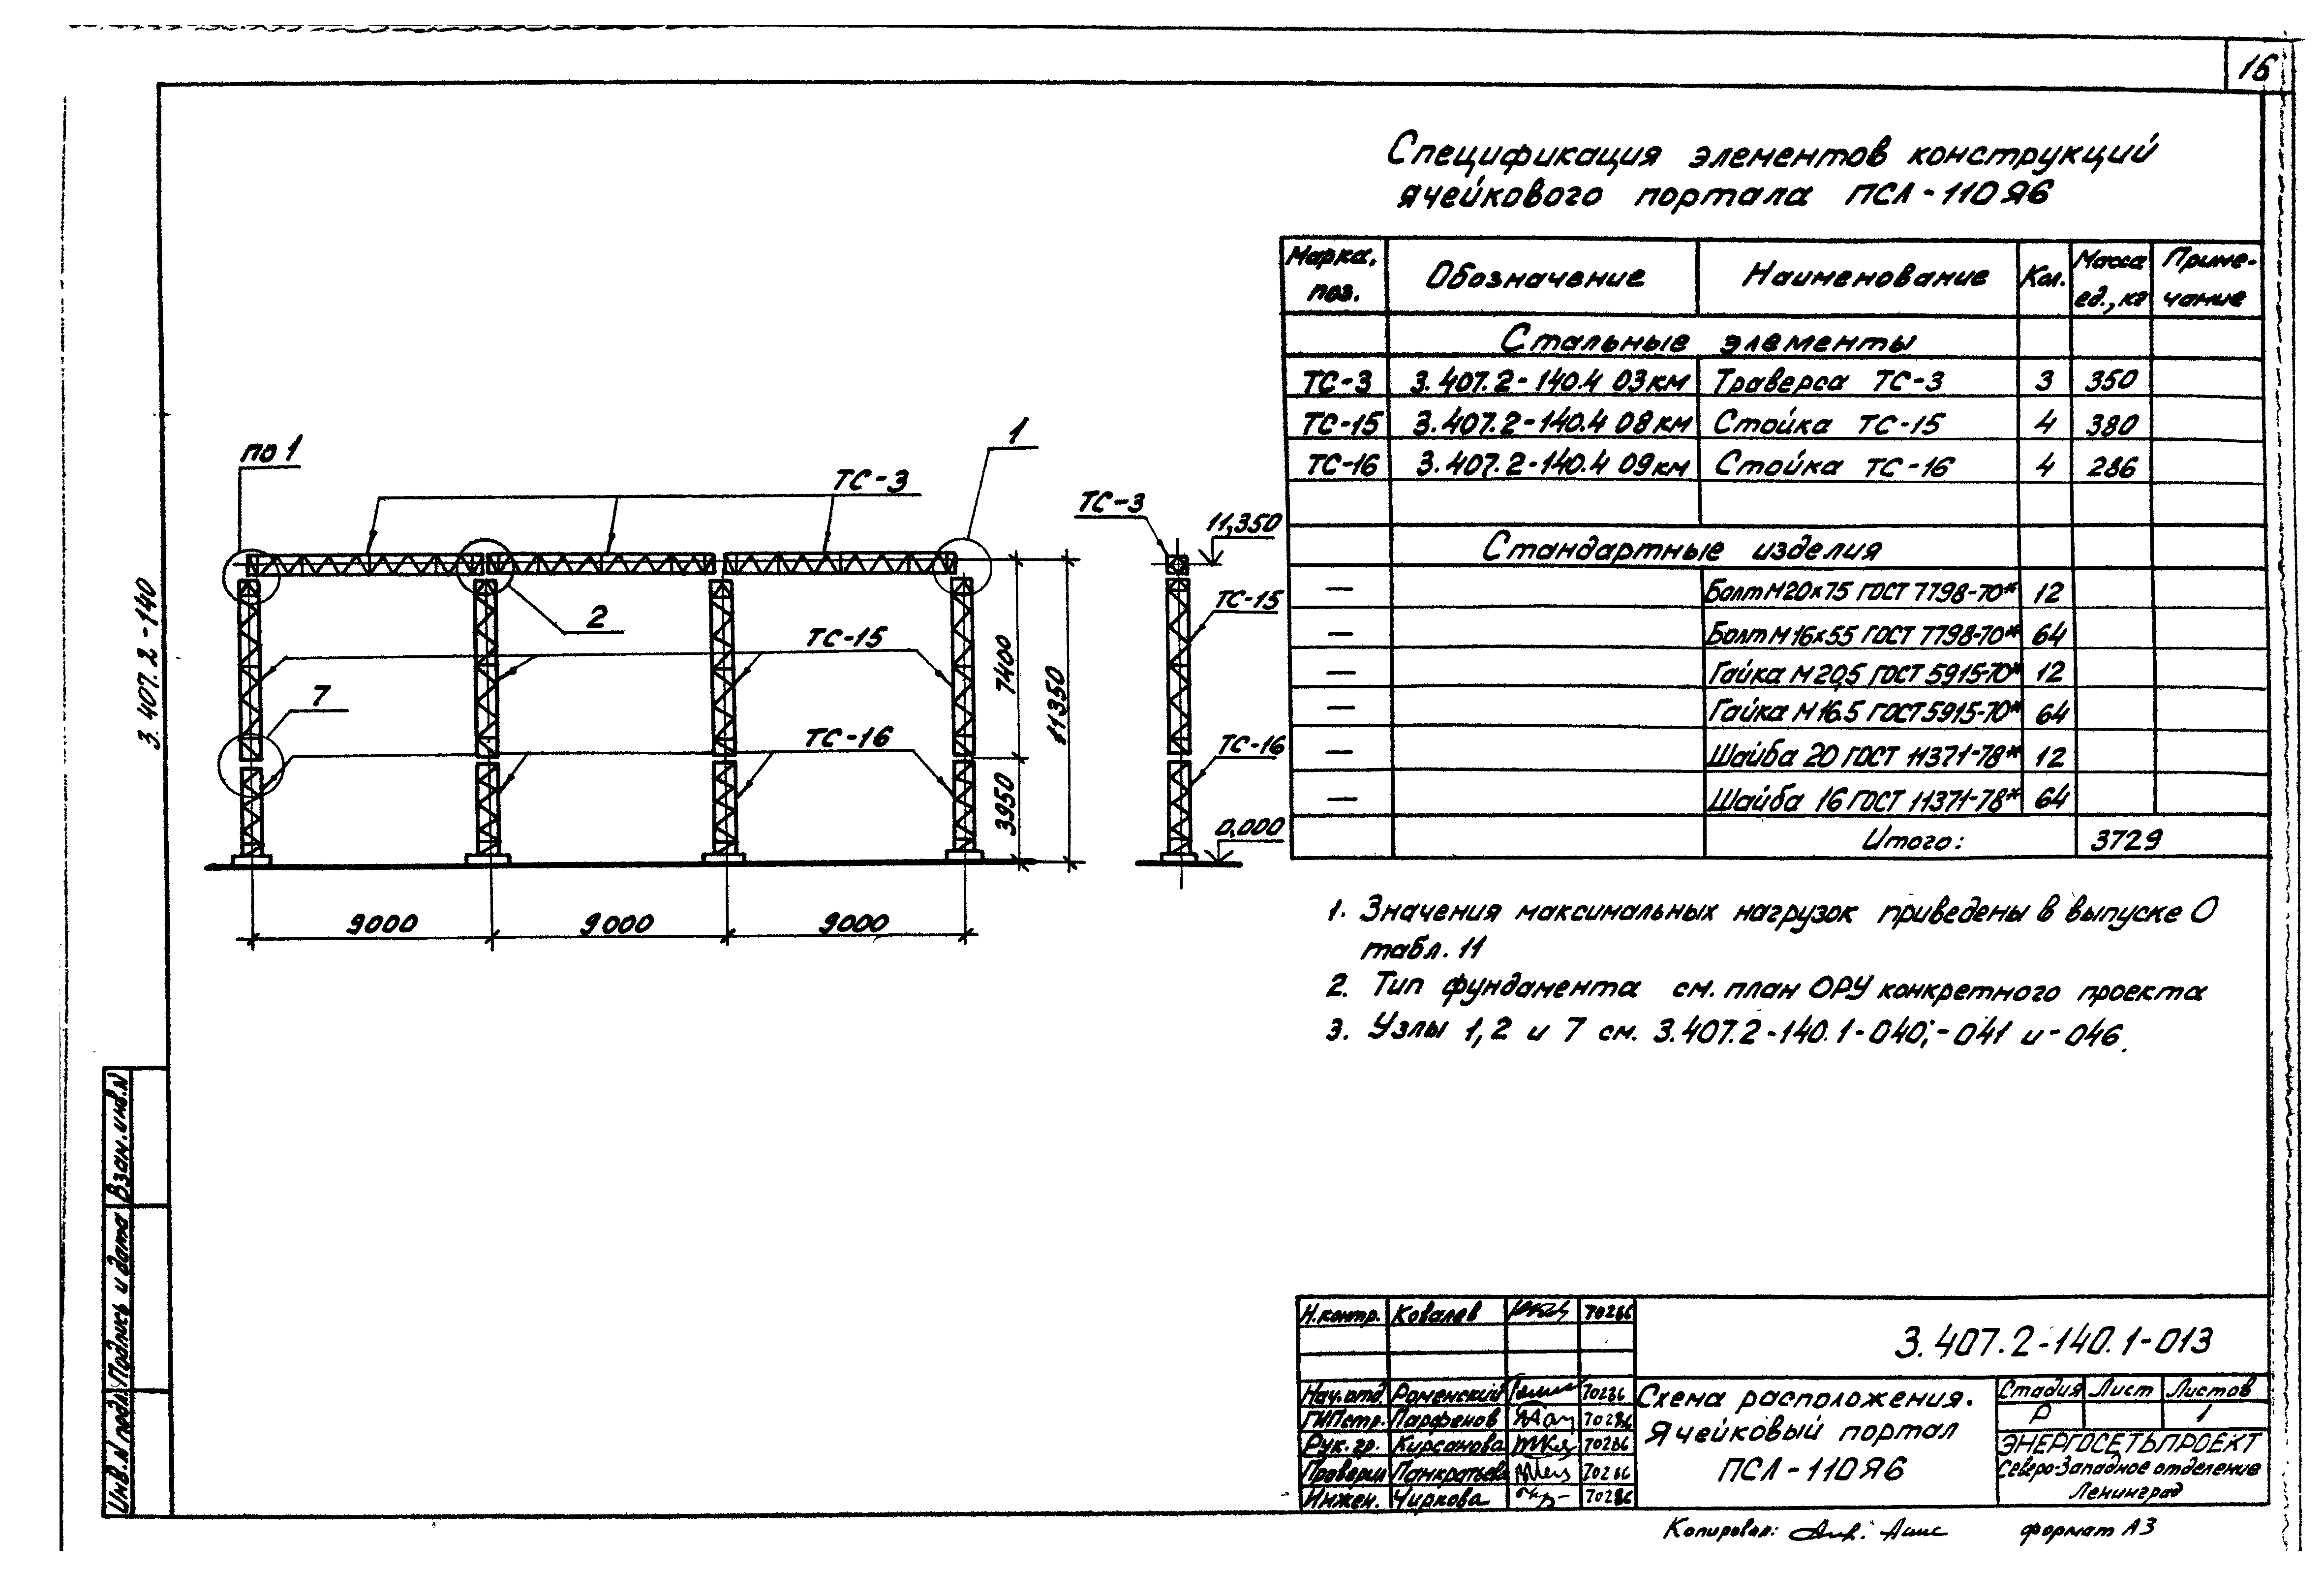 16
Спецификация элементов конструкций
ячейкового портала ПСЛ-110Я6
Марка, поз. Обозначение Наименование Кол. Масса ед., кг Приме-чание
Стальные элементы
ТС-3 3.407.2-140.4 03км Траверса ТС-3 3 350
ТС-15 3.407.2-140.4 08км Стойка ТС-15 4 380
ТС-16 3.407.2-140.4 09км Стойка ТС-16 4 286
Стандартные изделия
— Болт М20х75 ГОСТ 7798-70* 12
— Болт М16х55 ГОСТ 7798-70* 64
— Гайка М20,5 ГОСТ 5915-70* 12
— Гайка М16.5 ГОСТ 5915-70* 64
— Шайба 20 ГОСТ 11371-78* 12
— Шайба 16 ГОСТ 11371-78* 64
Итого: 3729
по 1
ТС-3
1
2
ТС-15
7
ТС-16
7400
3950
11350
9000 9000 9000
ТС-3
11,350
ТС-15
ТС-16
0,000
3.407.2-140
1. Значения максимальных нагрузок приведены в выпуске 0
табл. 11
2. Тип фундамента см. план ОРУ конкретного проекта
3. Узлы 1, 2 и 7 см. 3.407.2-140.1-040; -041 и -046.
Взам. инв. N
Подпись и дата
Инв. N подл.
Н.контр. Ковалев 70286
Нач.отд. Роменский 70286
ГИПстр. Парфенов 70286
Рук. гр. Кирсанова 70286
Проверил Панкратьева 70286
Инжен. Чиркова 70286
3.407.2-140.1-013
Схема расположения.
Ячейковый портал
ПСЛ-110Я6
Стадия Лист Листов
Р 1
ЭНЕРГОСЕТЬПРОЕКТ
Северо-Западное отделение
Ленинград
Копировал:
формат А3